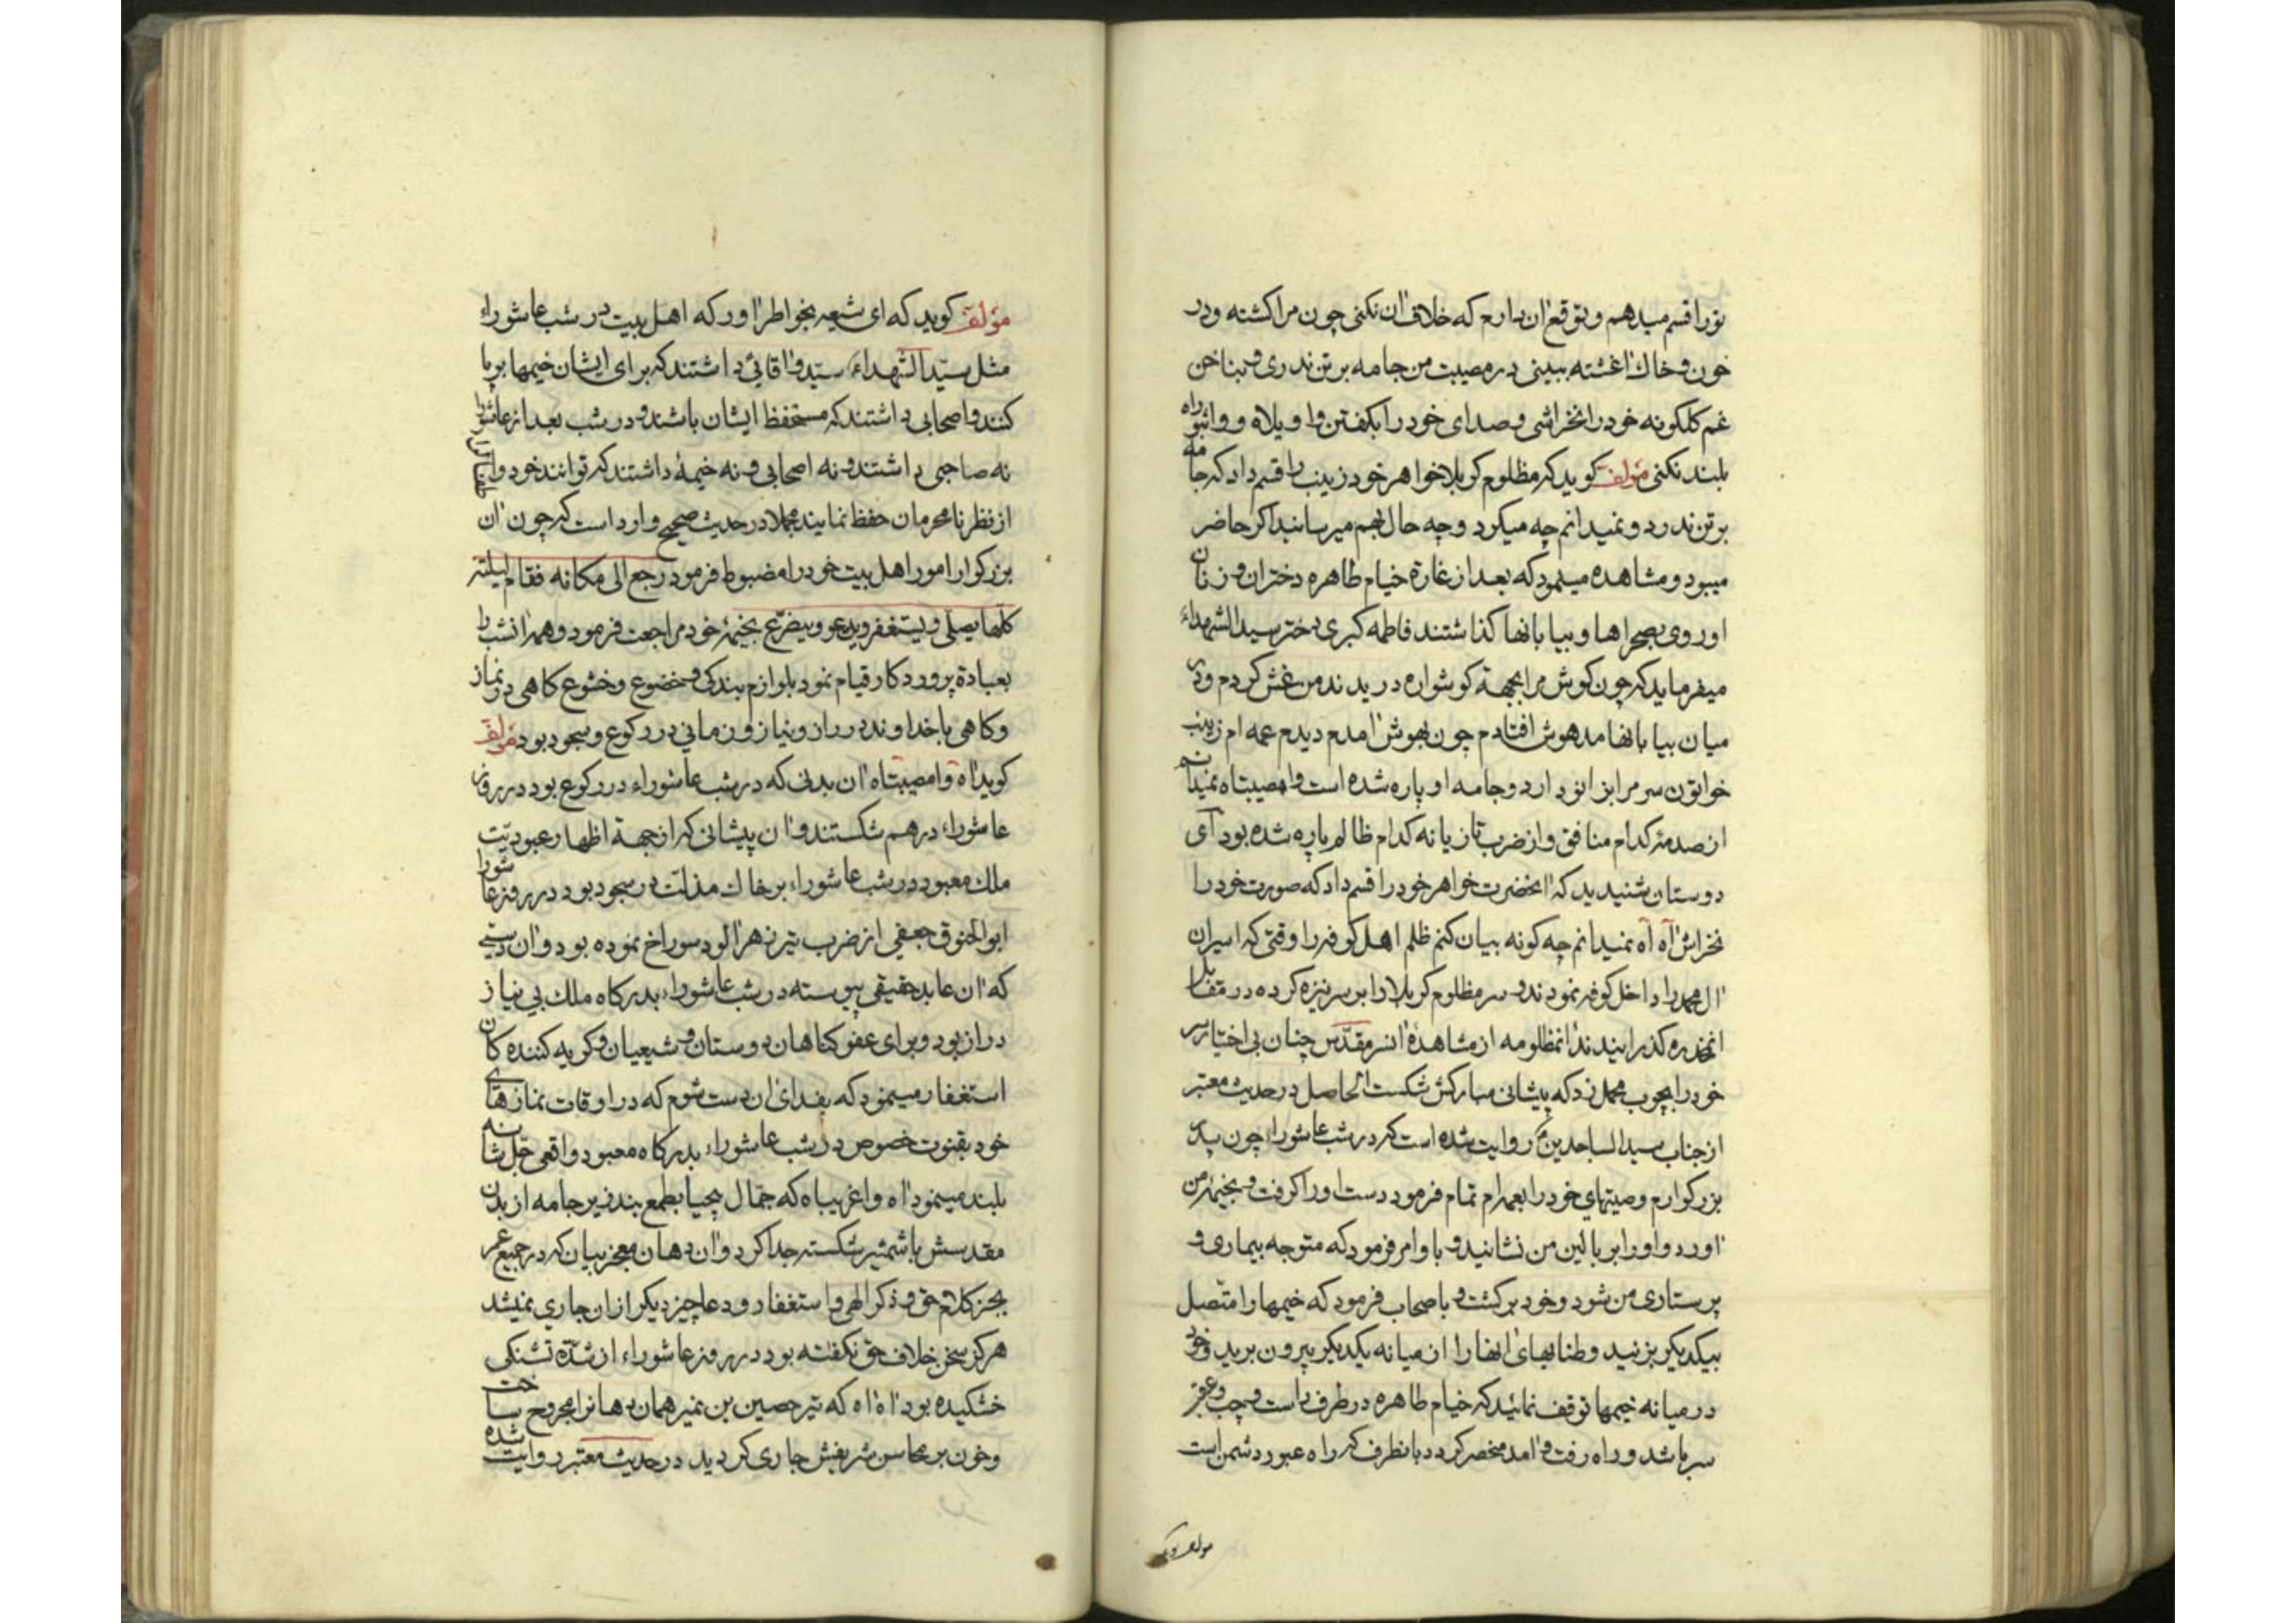 تورا قسم میدهم و توقع ان دارم که خلاف ان نکنی چون مرا کشته و در
خون و خاك اغشته ببینی در مصیبت من جامه بر تن ندری و بناخن
غم کلکونه خود را نخراشی و صدای خود را بکفتن وا ویلاه و واثبوراه
بلند نکنی مؤلف کوید که مظلوم کربلا خواهر خود زینب را قسم داد که جامه
بر تن ندرد و نمیدانم چه میکرد و چه حال بهم میرسانید اکر حاضر
میبود و مشاهده مینمود که بعد از غارة خیام طاهره دختران و زنان
او روی بصحراها و بیابانها کذاشتند فاطمه کبری دختر سید الشهداء
میفرماید که چون کوش مرا بجهة کوشواره دریدند من غش کردم و در
میان بیابانها مدهوش افتادم چون بهوش امدم دیدم عمه ام زینب
خواتون سر مرا بزانو دارد و جامه او پاره شده است وا مصیبتاه نمیدانم
از صدمۀ کدام منافق و از ضرب تازیانه کدام ظالم پاره شده بود آی
دوستان شنیدید که انحضرت خواهر خود را قسم داد که صورت خود را
نخراش آه آه نمیدانم چه کونه بیان کنم ظلم اهل کوفه را وقتی که اسیران
ال محمد را داخل کوفه نمودند و سر مظلوم کربلا را بر سر نیزه کرده در مقابل
انمخدره کذرانیدند انمظلومه از مشاهدۀ انسر مقدّس چنان بی اختیار سر
خود را بچوب محمل زد که پیشانی مبارکش شکست الحاصل در حدیث معتبر
از جناب سید الساجدین ع روایت شده است که در شب عاشوراء چون پدر
بزرکوارم وصیتهای خود را بعمه ام تمام فرمود دست او را کرفت و بخیمۀ من
اورد و او را بر بالین من نشانید و با و امر فرمود که متوجه بیماری و
پرستاری من شود و خود برکشت و باصحاب فرمود که خیمها را متصل
بیکدیکر بزنید و طنابهای انها را از میانه یکدیکر بیرون برید و خود
در میانه خیمها توقف نمائید که خیام طاهره در طرف راست و چپ و عقب
سر باشد و راه رفت و امد منحصر کردد بانطرف که راه عبور دشمن است
مؤلف کوید که
مؤلف کوید که ای شیعه بخواطر اور که اهل بیت در شب عاشوراء
مثل سیّد الشهداء سیّد و اقائی داشتند که برای ایشان خیمها برپا
کنند و اصحابی داشتند که مستحفظ ایشان باشند و در شب بعد از عاشورا
نه صاحبی داشتند و نه اصحابی و نه خیمۀ داشتند که توانند خود را
از نظر نامحرمان حفظ نمایند مجملا در حدیث صحیح وارد است که چون ان
بزرکوار امور اهل بیت خود را مضبوط فرمود رجع الی مکانه فقام لیلته
کلها یصلی و یستغفر و یدعو و یتضرّع بخیمۀ خود مراجعت فرمود و همۀ انشب را
بعبادة پروردکار قیام نمود بلوازم بندکی و خضوع و خشوع کاهی در نماز
و کاهی با خداوند در راز و نیاز و زمانی در رکوع و سجود بود مؤلف
کوید اه وا مصیبتاه ان بدنی که در شب عاشوراء در رکوع بود در روز
عاشوراء در هم شکستند و ان پیشانی که از جهة اظهار عبودیّت
ملك معبود در شب عاشوراء بر خاك مذلت در سجود بود در روز عاشورا
ابو الحنوق جعفی از ضرب تیر زهر الود سوراخ نموده بود و ان دستی
که ان عابد حقیقی پیوسته در شب عاشوراء بدرکاه ملك بی نیاز
دراز بود و برای عفو کناهان دوستان و شیعیان و کریه کننده کان
استغفار مینمود که بفدای ان دست شوم که در اوقات نمازهای
خود بقنوت خصوص در شب عاشوراء بدرکاه معبود واقعی جل شانه
بلند مینمود اه وا غریباه که جمّال بیحیا بطمع بند زیر جامه از بدن
مقدسش با شمشیر شکسته جدا کرد و ان دهان معجز بیان که در جمیع عمر
بجز کلام حق و ذکر الهی و استغفار و دعا چیز دیکر از ان جاری نمیشد
هرکز سخن خلاف حق نکفته بود در روز عاشوراء از شدّة تشنکی
خشکیده بود اه اه که تیر حصین بن نمیر همان دهانرا مجروح ساخت
و خون بر محاسن شریفش جاری کردید در حدیث معتبر روایت شده